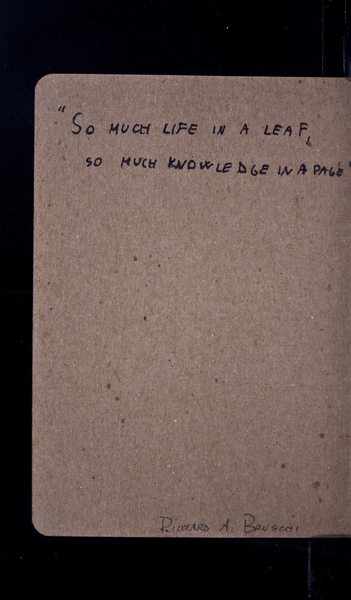 "So MUCH LIFE IN A LEAF,
SO MUCH KNOWLEDGE IN A PAGE"
RICHARD A. BRUSCHI